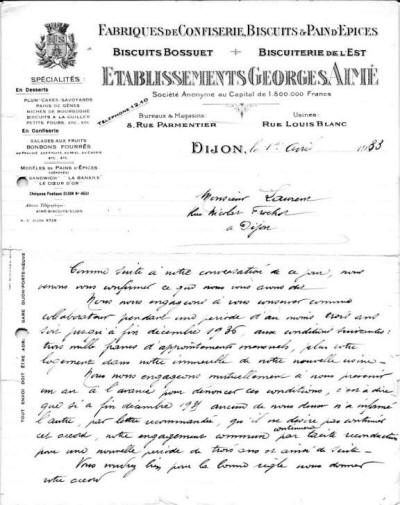 FABRIQUES DE CONFISERIE, BISCUITS & PAIN D'EPICES
BISCUITS BOSSUET + BISCUITERIE DE L'EST
ETABLISSEMENTS GEORGES AIMÉ
Société Anonyme au Capital de 1.800.000 Francs
TÉLÉPHONE 12.10
Bureaux & Magasins:
8, RUE PARMENTIER
Usines:
RUE LOUIS BLANC
SPÉCIALITÉS:
En Desserts
PLUM-CAKES-SAVOYARDS
PAINS DE GÊNES
BICHES DE BOURGOGNE
BISCUITS A LA CUILLER
PETITS FOURS, ETC. ETC.
En Confiserie
SALADES AUX FRUITS
BONBONS FOURRÉS
ETC., ETC.
MODÈLES DE PAINS D'ÉPICES
SANDWICH LA BANANE
LE CŒUR D'OR
Chèques Postaux DIJON
Adresse Télégraphique:
AIMÉ-BISCUITS-DIJON
DIJON, le 1er Avril 1933
Monsieur Laurent
Rue Nicolas Frochot
à Dijon
Comme suite à notre conversation de ce jour, nous
venons vous confirmer ce que nous vous avons dit.
Nous nous engageons à vous conserver comme
collaborateur pendant une période d'au moins trois ans
soit jusqu'à fin décembre 1936 aux conditions suivantes:
trois mille francs d'appointements mensuels, plus votre
logement dans notre immeuble de notre nouvelle usine.
Nous nous engageons mutuellement à nous prévenir
un an à l'avance pour dénoncer ces conditions, c'est à dire
que si à fin décembre 193 aucun de nous deux n'a informé
l'autre, par lettre recommandée, qu'il ne désire pas continuer
cet accord, notre engagement commun continuera par tacite reconduction
pour une nouvelle période de trois ans et ainsi de suite.
Vous voudrez bien pour la bonne règle nous donner
votre accord
TOUT ENVOI DOIT ÊTRE ADR. GARE DIJON-PORTE-NEUVE